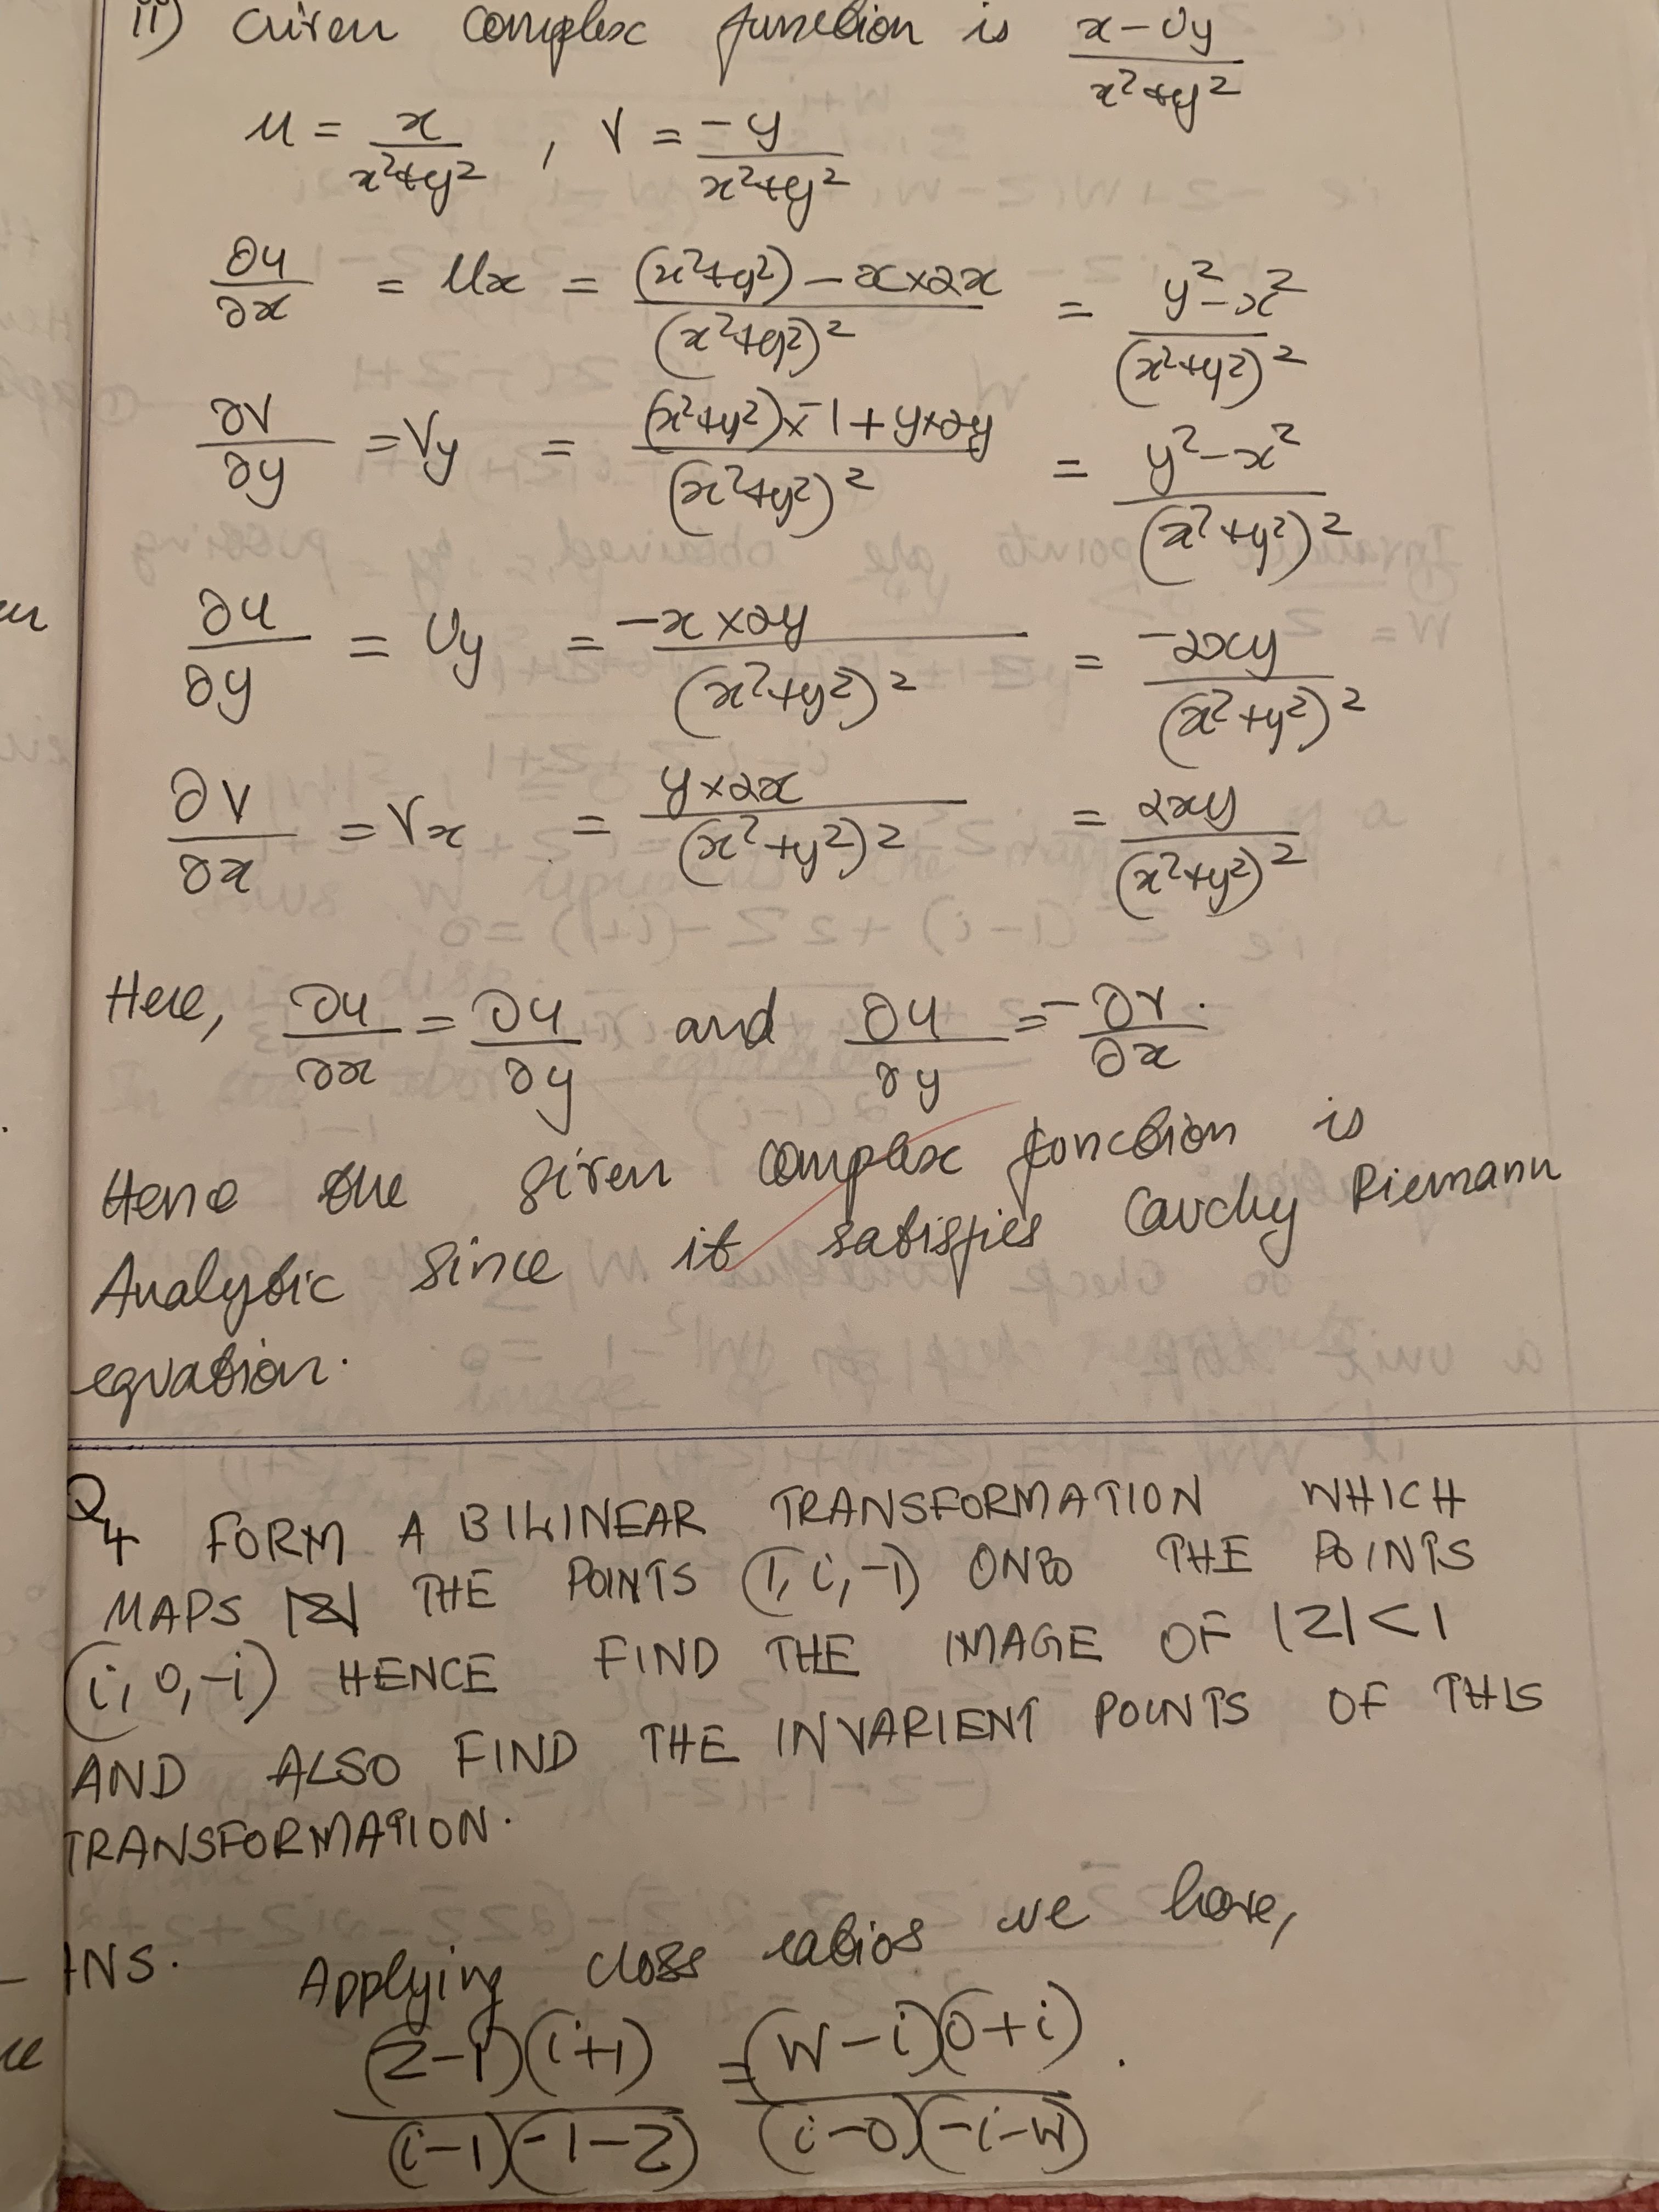 ii) Given complex function is (x-iy)/(x²+y²)
u = x/(x²+y²) , v = -y/(x²+y²)
∂u/∂x = ux = ((x²+y²) - x×2x)/(x²+y²)² = (y²-x²)/(x²+y²)²
∂v/∂y = vy = ((x²+y²)×-1+y×2y)/(x²+y²)² = (y²-x²)/(x²+y²)²
∂u/∂y = uy = (-x×2y)/(x²+y²)² = -2xy/(x²+y²)²
∂v/∂x = vx = (y×2x)/(x²+y²)² = 2xy/(x²+y²)²
Here, ∂u/∂x = ∂u/∂y and ∂u/∂y = -∂v/∂x.
Hence the given complex function is
Analytic since it satisfies Cauchy Riemann
equation.
Q4 FORM A BILINEAR TRANSFORMATION WHICH
MAPS THE POINTS (1, i, -1) ONTO THE POINTS
(i, 0, -i) HENCE FIND THE IMAGE OF |Z|<1
AND ALSO FIND THE INVARIENT POINTS OF THIS
TRANSFORMATION.
ANS. Applying cross ratios we have,
(z-1)(i+1)/(i-1)(-1-z) = (w-i)(0+i)/(i-0)(-i-w).